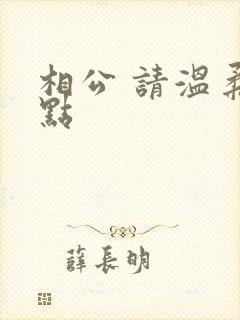 相公 請溫柔
點
薛長明